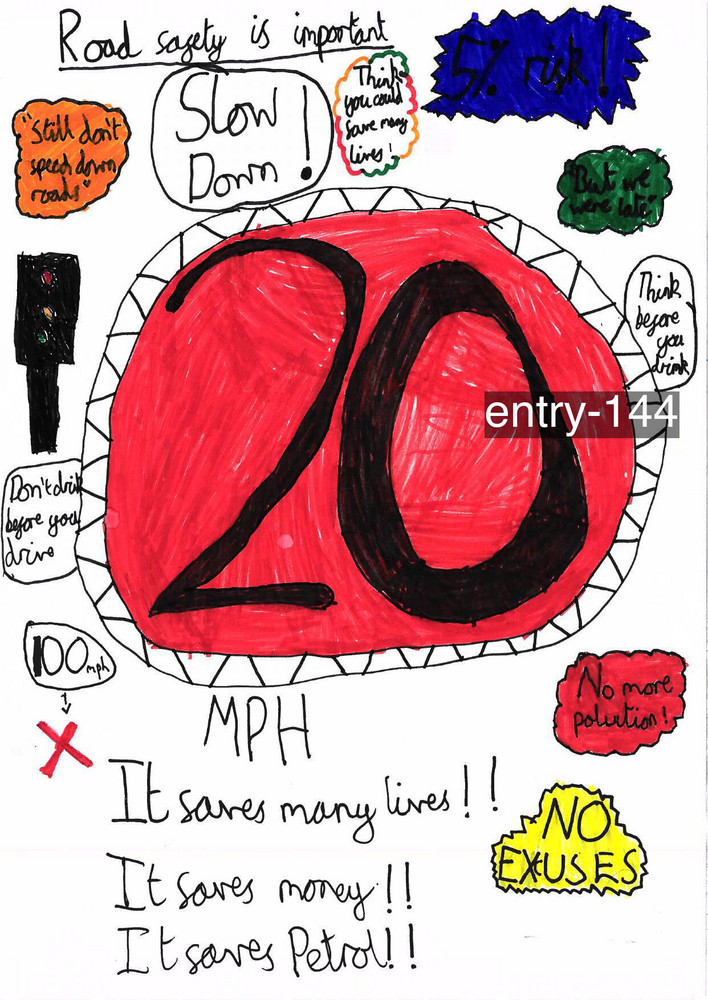 Road safety is important
Slow
Down!
Think
you could
save many
lives!
5% risk!
"Still don't
speed down
roads"
"But we
were late"
Think
before
you
drink
20
entry-144
Don't drink
before you
drive
100mph
MPH
No more
polution!
It saves many lives!!
NO
EXUSES
It saves money!!
It saves Petrol!!